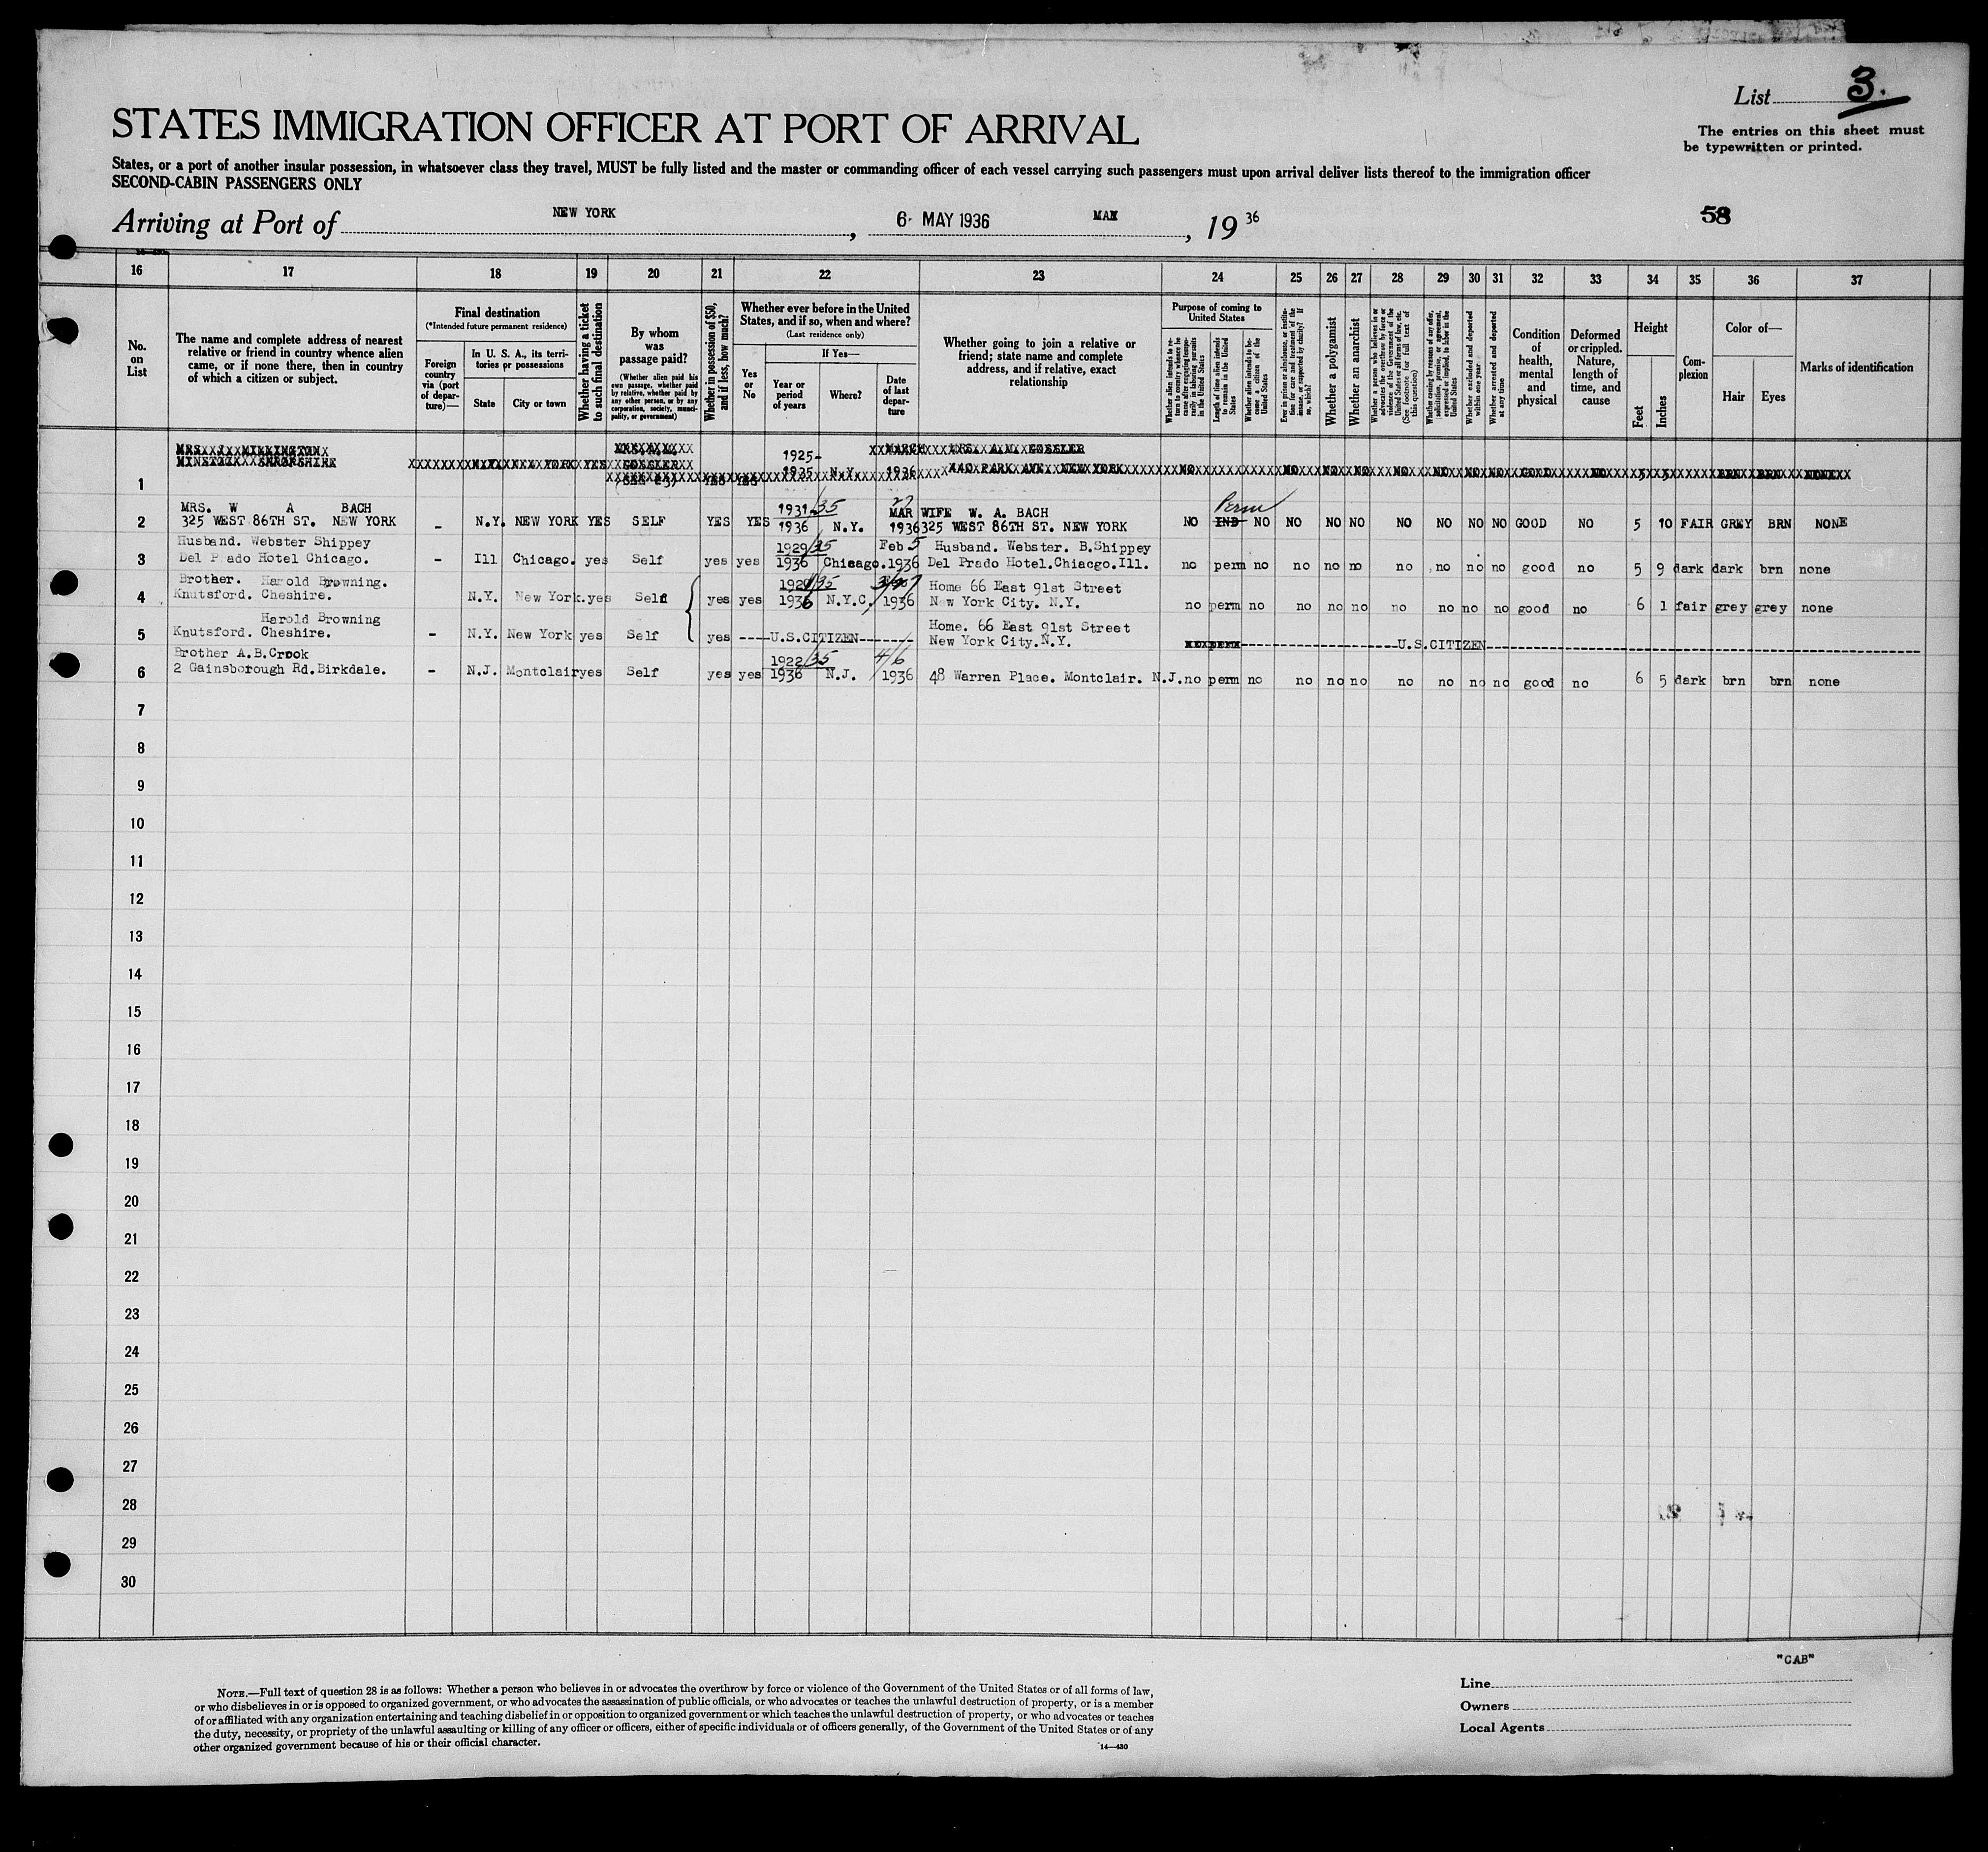 List 3.
The entries on this sheet must
be typewritten or printed.
STATES IMMIGRATION OFFICER AT PORT OF ARRIVAL
States, or a port of another insular possession, in whatsoever class they travel, MUST be fully listed and the master or commanding officer of each vessel carrying such passengers must upon arrival deliver lists thereof to the immigration officer
SECOND-CABIN PASSENGERS ONLY
Arriving at Port of NEW YORK, 6 MAY 1936 MAY, 19 36
58
16 17 18 19 20 21 22 23 24 25 26 27 28 29 30 31 32 33 34 35 36 37
No. on List
The name and complete address of nearest relative or friend in country whence alien came, or if none there, then in country of which a citizen or subject.
Final destination
(*Intended future permanent residence)
Foreign country via (port of departure)—
In U. S. A., its territories or possessions
State
City or town
Whether having a ticket to such final destination
By whom was passage paid?
(Whether alien paid his own passage, whether paid by relative, whether paid by any other person, or by any corporation, society, municipality, or government)
Whether in possession of $50, and if less, how much?
Whether ever before in the United States, and if so, when and where?
(Last residence only)
Yes or No
If Yes—
Year or period of years
Where?
Date of last departure
Whether going to join a relative or friend; state name and complete address, and if relative, exact relationship
Purpose of coming to United States
Whether alien intends to return to country whence he came after engaging temporarily in laboring pursuits in the United States
Length of time alien intends to remain in the United States
Whether alien intends to become a citizen of the United States
Ever in prison or almshouse, or institution for care and treatment of the insane, or supported by charity? If so, which?
Whether a polygamist
Whether an anarchist
Whether a person who believes in or advocates the overthrow by force or violence of the Government of the United States or all forms of law, etc. (See footnote for full text of this question)
Whether coming by reasons of any offer, solicitation, promise, or agreement, expressed or implied, to labor in the United States
Whether excluded and deported within one year
Whether arrested and deported at any time
Condition of health, mental and physical
Deformed or crippled. Nature, length of time, and cause
Height
Feet
Inches
Complexion
Color of—
Hair
Eyes
Marks of identification
1 MRS. J. MILLINGTON
SHROPSHIRE N.Y. NEW YORK YES GOSSLER YES YES 1925- 1935 N.Y. MARCH 1936 MRS. A.M. GOSSLER
440 PARK AVE. NEW YORK NO NO NO NO NO NO NO NO GOOD NO 5 5 BRN BRN NONE
2 MRS. W A BACH
325 WEST 86TH ST. NEW YORK - N.Y. NEW YORK YES SELF YES YES 1931 35 1936 N.Y. 27 MAR 1936 WIFE W. A. BACH
325 WEST 86TH ST. NEW YORK NO IND Perm NO NO NO NO NO NO NO NO GOOD NO 5 10 FAIR GREY BRN NONE
3 Husband. Webster Shippey
Del Prado Hotel Chicago. - Ill Chicago. yes Self yes yes 1929/35 1936 Chicago. Feb 5 1936 Husband. Webster. B.Shippey
Del Prado Hotel.Chiacgo.Ill. no perm no no no no no no no no good no 5 9 dark dark brn none
4 Brother. Harold Browning.
Knutsford. Cheshire. N.Y. New York.yes Self yes yes 35 1936 N.Y.C. 1936 Home 66 East 91st Street
New York City. N.Y. no perm no no no no no no no no good no 6 1 fair grey grey none
5 Harold Browning
Knutsford. Cheshire. - N.Y. New York yes Self yes ----U.S.CITIZEN------- Home. 66 East 91st Street
New York City.N.Y. ----U.S.CITIZEN----
6 Brother A.B.Crook
2 Gainsborough Rd.Birkdale. - N.J. Montclair yes Self yes yes 1922/35 1936 N.J. 4/6 1936 48 Warren Place. Montclair. N.J. no perm no no no no no no no no good no 6 5 dark brn brn none
7
8
9
10
11
12
13
14
15
16
17
18
19
20
21
22
23
24
25
26
27
28
29
30
"CAB"
NOTE.—Full text of question 28 is as follows: Whether a person who believes in or advocates the overthrow by force or violence of the Government of the United States or of all forms of law,
or who disbelieves in or is opposed to organized government, or who advocates the assassination of public officials, or who advocates or teaches the unlawful destruction of property, or is a member
of or affiliated with any organization entertaining and teaching disbelief in or opposition to organized government or which teaches the unlawful destruction of property, or who advocates or teaches
the duty, necessity, or propriety of the unlawful assaulting or killing of any officer or officers, either of specific individuals or of officers generally, of the Government of the United States or of any
other organized government because of his or their official character.
14—430
Line
Owners
Local Agents